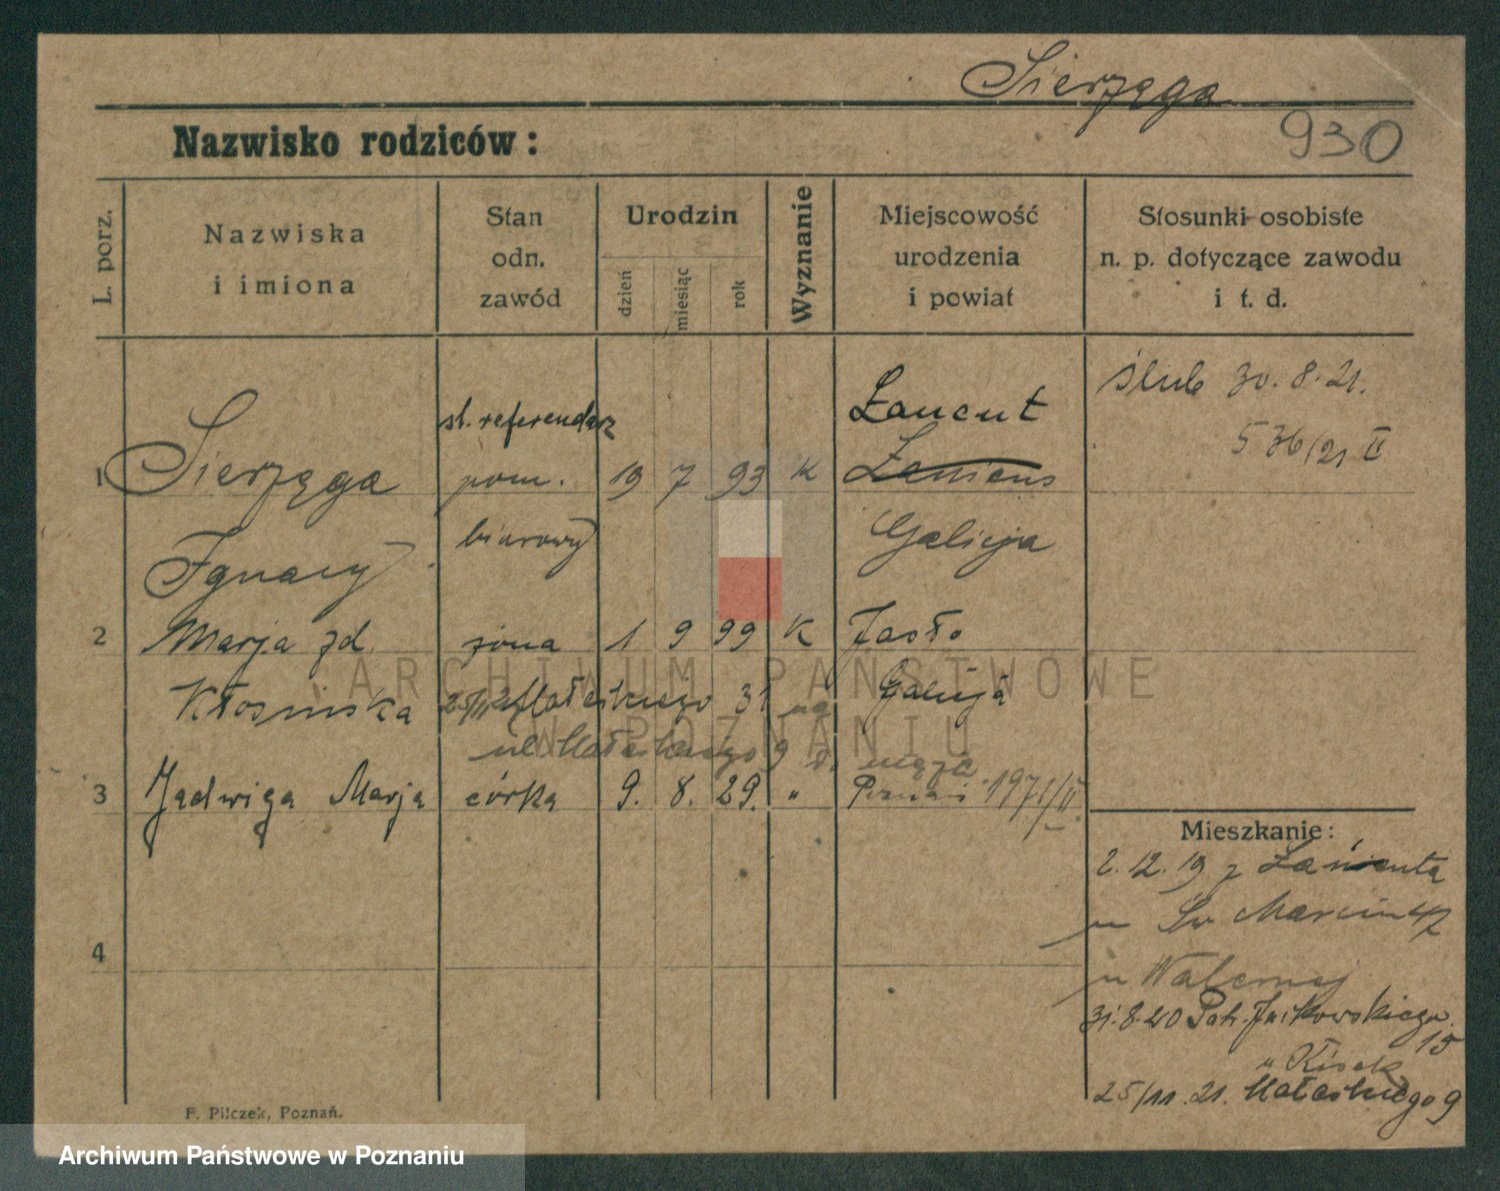 Sierzęga
930
Nazwisko rodziców:
L. porz.
Nazwiska
i imiona
Stan
odn.
zawód
Urodzin
dzień
miesiąc
rok
Wyznanie
Miejscowość
urodzenia
i powiat
Stosunki osobiste
n. p. dotyczące zawodu
i t. d.
ślub 30. 8. 21.
536/21 II
st. referendarz
Łancut
1 Sierzęga pom. 19 7 93 K
Ignacy biurowy Galicja
2 Marja zd. żona 1 9 99 K Jasło
Kłosińska 31 Galicja
męża
3 Jadwiga Marja córka 9. 8. 29. " Poznań 1971/II
4
Mieszkanie:
2. 12. 19 z Łańcuta
Św Marcin 47
31. 8. 20 15
25/11. 21. Małeckiego 9
F. Pilczek, Poznań.
ARCHIWUM PAŃSTWOWE
W POZNANIU
Archiwum Państwowe w Poznaniu